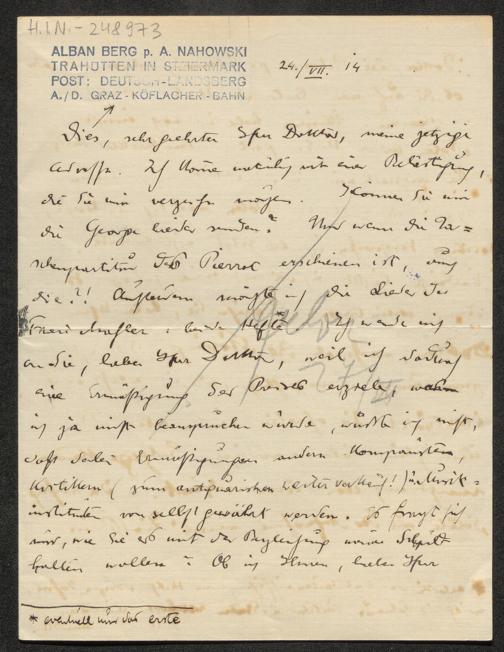 H.I.N.-248973
ALBAN BERG p. A. NAHOWSKI
TRAHÜTTEN IN STEIERMARK
POST: DEUTSCH-LANDSBERG
A./D. GRAZ-KÖFLACHER-BAHN
24./VII. 14
Dies, sehr geehrter Herr Doktor, meine jetzige
Adresse. Ich komme mit einer Belästigung,
die Sie mir verzeihn mögen. Können Sie mir
die George Lieder senden? Und wenn die Ta=
schenpartitur des Pierrot erschienen ist, auch
die?! Außerdem möchte ich die Lieder der
Mahler: beide Hefte* Ich wende mich
an Sie, lieber Herr Doktor, weil ich dadurch
eine Ermäßigung des Preises erziele, was
ich ja nicht beanspruchen würde, wüßte ich nicht,
daß solche Ermäßigungen andern Komponisten,
Kritikern (zum antiquarischen weiter verkauf!) u. Musik=
instituten von selbst gewährt werden. So frägt sich
nur, wie Sie es mit der Begleichung meiner Schuld
halten wollen? Ob ich Ihnen, lieber Herr
* eventuell nur das erste